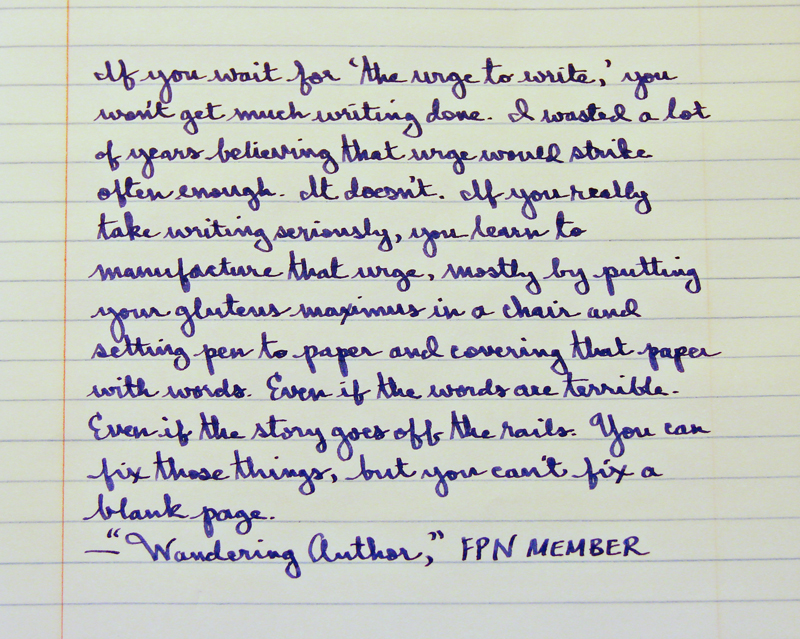 If you wait for 'the urge to write,' you
won't get much writing done. I wasted a lot
of years believing that urge would strike
often enough. It doesn't. If you really
take writing seriously, you learn to
manufacture that urge, mostly by putting
your gluteus maximus in a chair and
setting pen to paper and covering that paper
with words. Even if the words are terrible.
Even if the story goes off the rails. You can
fix those things, but you can't fix a
blank page.
—"Wandering Author," FPN MEMBER